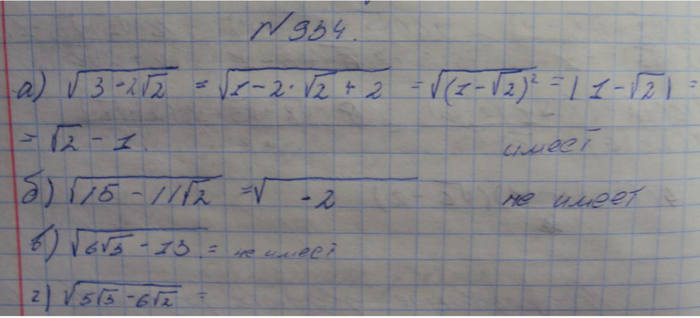 №934.
а) √(3-2√2) = √(1-2·√2+2) = √((1-√2)²) = |1-√2| =
= √2 - 1. имеет
б) √(15-11√2) = √( -2 ) не имеет
в) √(6√3-13) = не имеет
г) √(5√3-6√2) =